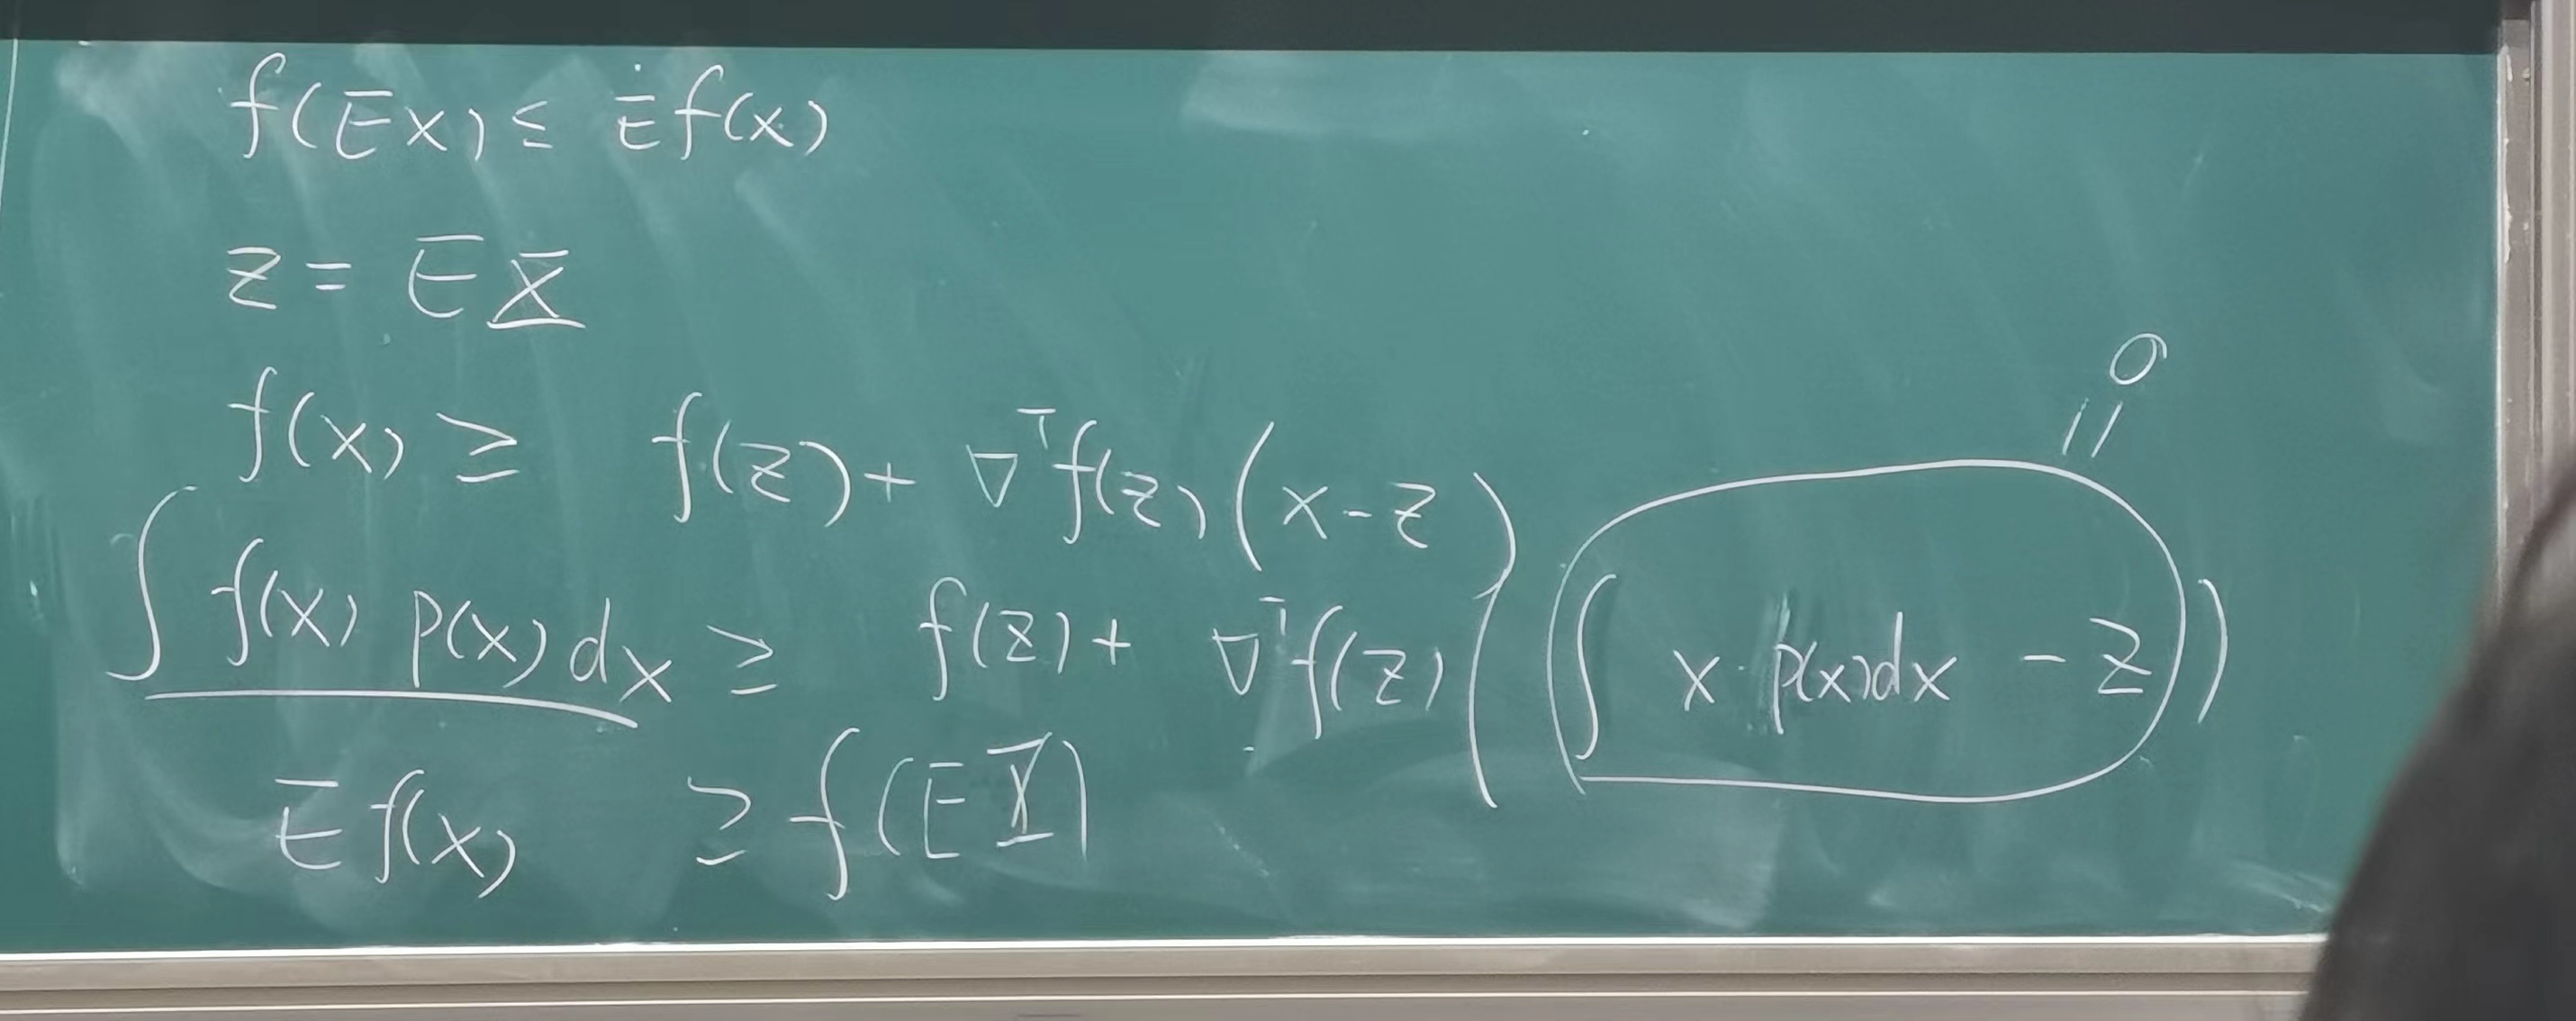 f(EX) ≤ Ef(x)
z = EX
f(x) ≥ f(z) + ∇ᵀf(z)(x-z)
0
||
∫ f(x) p(x)dx ≥ f(z) + ∇ᵀf(z)(∫ x·p(x)dx - z)
Ef(x) ≥ f(EX)